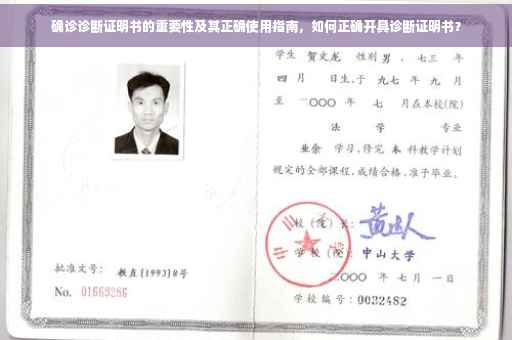 确诊诊断证明书的重要性及其正确使用指南，如何正确开具诊断证明书？
学生 贺文龙 性别 男 、七三 年
四 月 日生,于 九七 年 九 月
至 二〇〇〇 年 七 月在本校(院)
法 学 专业
业余 学习,修完 本 科教学计划
规定的全部课程,成绩合格,准予毕业。
校(院)长:
学校(院): 中山大学
二〇〇〇 年 七 月 一 日
学校编号: 0032482
批准文号: 教直(1993)8号
No. 01669286